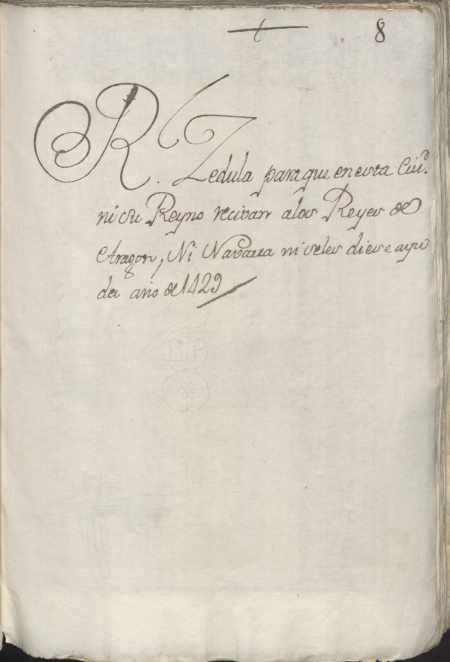 8
R. Zedula para que en esta Ciu.d
ni su Reyno reciban a los Reyes de
Aragon, Ni Navarra ni se les diese ayu
da año de 1429